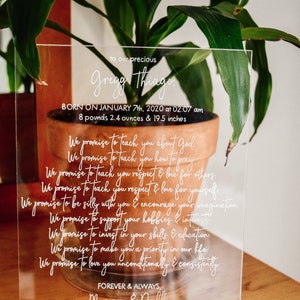 to our precious
Gregg Thiago
BORN ON JANUARY 7th, 2020 at 02:07 am
8 pounds 2.4 ounces & 19.5 inches
We promise to teach you about God.
We promise to teach you how to pray.
We promise to teach you respect & love for others.
We promise to teach you respect & love for yourself.
We promise to be silly with you & encourage your imagination.
We promise to support your hobbies & interest.
We promise to invest in your skills & education.
We promise to make you a priority in our life.
We promise to love you unconditionally & consistently.
FOREVER & ALWAYS,